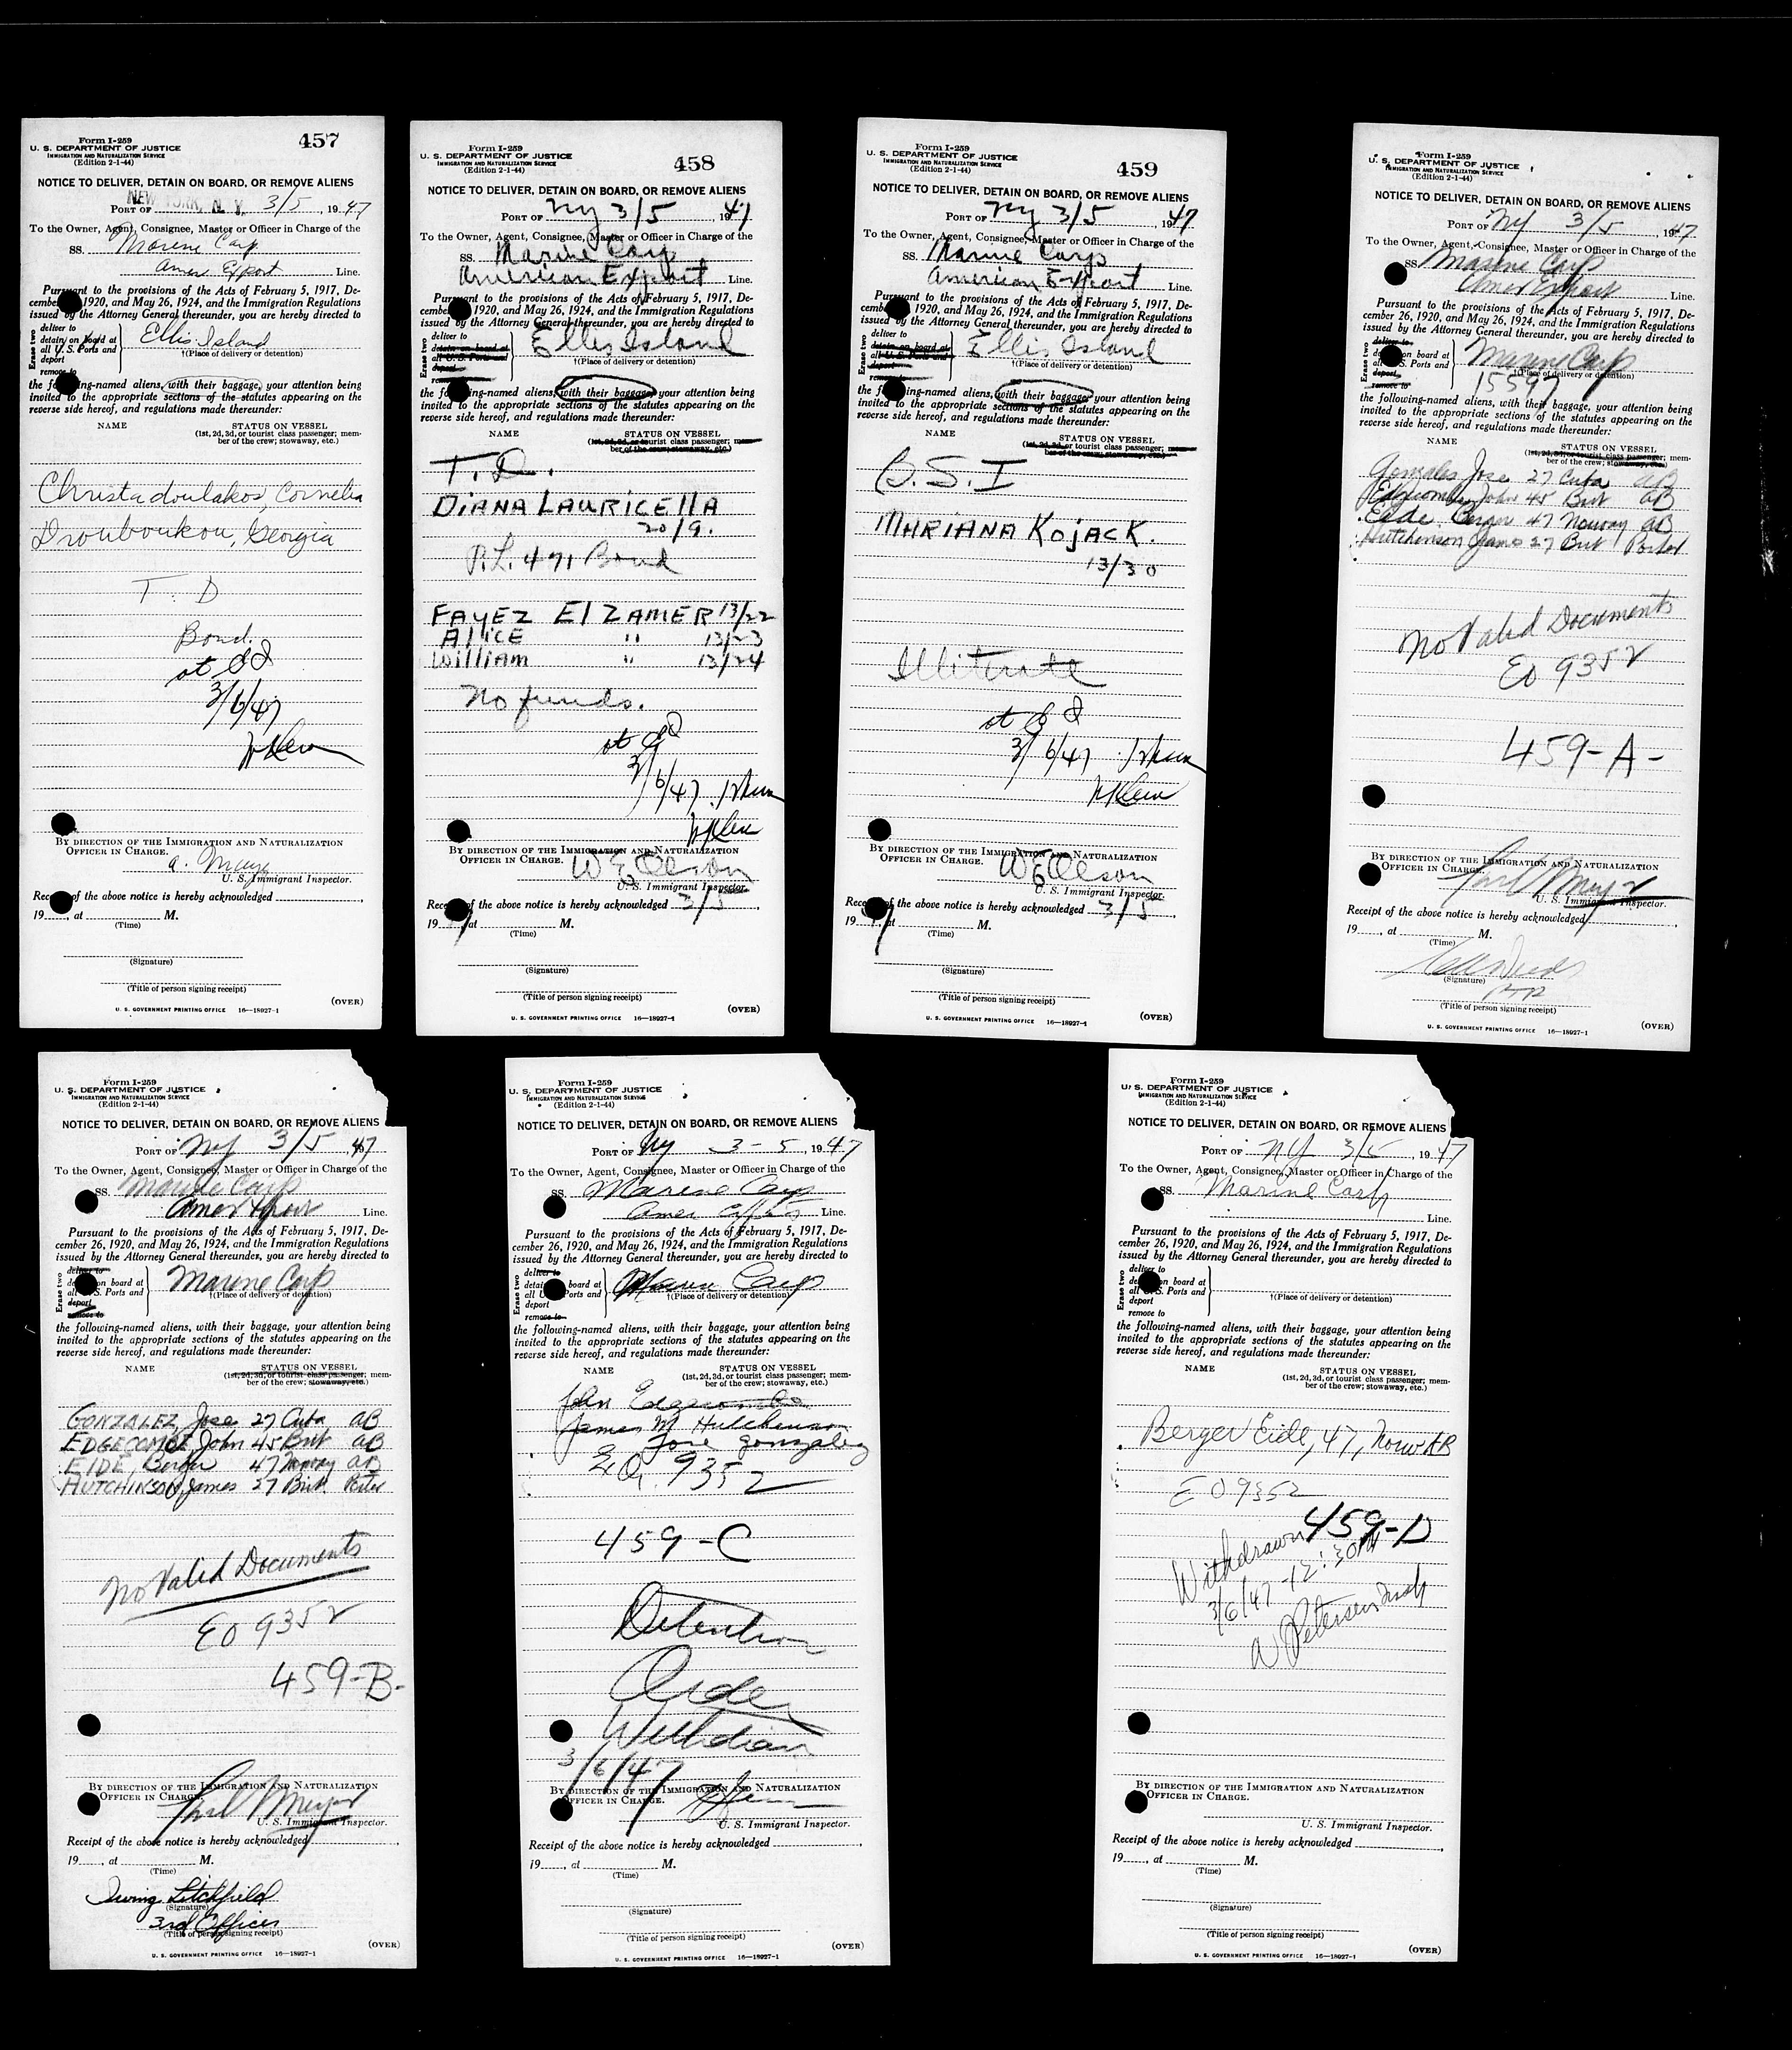 457
Form I-259
U. S. DEPARTMENT OF JUSTICE
IMMIGRATION AND NATURALIZATION SERVICE
(Edition 2-1-44)
NOTICE TO DELIVER, DETAIN ON BOARD, OR REMOVE ALIENS
NEW YORK, N. Y.
PORT OF 3/5, 1947
To the Owner, Agent, Consignee, Master or Officer in Charge of the
SS. Marine Carp
Amer Export Line.
Pursuant to the provisions of the Acts of February 5, 1917, De-
cember 1920, and May 26, 1924, and the Immigration Regulations
issued by the Attorney General thereunder, you are hereby directed to
Erase two
deliver to
detain on board at
all U. S. Ports and
deport
remove to
Ellis Island
†(Place of delivery or detention)
the following-named aliens, with their baggage, your attention being
invited to the appropriate sections of the statutes appearing on the
reverse side hereof, and regulations made thereunder:
NAME STATUS ON VESSEL
(1st, 2d, 3d, or tourist class passenger; mem-
ber of the crew; stowaway, etc.)
Christadoulakos, Cornelia
Drouboukou, Georgia
T. D
Bond.
at
3/6/47
BY DIRECTION OF THE IMMIGRATION AND NATURALIZATION
OFFICER IN CHARGE.
U. S. Immigrant Inspector.
Receipt of the above notice is hereby acknowledged
19 , at M.
(Time)
(Signature)
(Title of person signing receipt)
(OVER)
U. S. GOVERNMENT PRINTING OFFICE 16—18927-1
458
Form I-259
U. S. DEPARTMENT OF JUSTICE
IMMIGRATION AND NATURALIZATION SERVICE
(Edition 2-1-44)
NOTICE TO DELIVER, DETAIN ON BOARD, OR REMOVE ALIENS
PORT OF NY 3/5 1947
To the Owner, Agent, Consignee, Master or Officer in Charge of the
SS. Marine Carp
American Export Line.
Pursuant to the provisions of the Acts of February 5, 1917, De-
cember 1920, and May 26, 1924, and the Immigration Regulations
issued by the Attorney General thereunder, you are hereby directed to
Erase two
deliver to
detain on board at
all U. S. Ports and
deport
Ellis Island
†(Place of delivery or detention)
the following-named aliens, with their baggage, your attention being
invited to the appropriate sections of the statutes appearing on the
reverse side hereof, and regulations made thereunder:
NAME STATUS ON VESSEL
(1st, 2d, 3d, or tourist class passenger; mem-
ber of the crew; stowaway, etc.)
T. D.
DIANA LAURICEllA
20/9.
P.L. 471 Bond
FAYEZ El ZAMER 13/22
AlICE " 13/23
William " 13/24
No funds.
at
3/6/47
BY DIRECTION OF THE IMMIGRATION AND NATURALIZATION
OFFICER IN CHARGE. W E Olson
U. S. Immigrant Inspector.
Receipt of the above notice is hereby acknowledged 3/5
19 , at M.
(Time)
(Signature)
(Title of person signing receipt)
(OVER)
U. S. GOVERNMENT PRINTING OFFICE 16—18927-1
459
Form I-259
U. S. DEPARTMENT OF JUSTICE
IMMIGRATION AND NATURALIZATION SERVICE
(Edition 2-1-44)
NOTICE TO DELIVER, DETAIN ON BOARD, OR REMOVE ALIENS
PORT OF NY 3/5 1947
To the Owner, Agent, Consignee, Master or Officer in Charge of the
SS. Marine Carp
American Export Line.
Pursuant to the provisions of the Acts of February 5, 1917, De-
cember 1920, and May 26, 1924, and the Immigration Regulations
issued by the Attorney General thereunder, you are hereby directed to
Erase two
deliver to
detain on board at
all U. S. Ports and
deport
Ellis Island
†(Place of delivery or detention)
the following-named aliens, with their baggage, your attention being
invited to the appropriate sections of the statutes appearing on the
reverse side hereof, and regulations made thereunder:
NAME STATUS ON VESSEL
(1st, 2d, 3d, or tourist class passenger; mem-
ber of the crew; stowaway, etc.)
B.S.I
MARIANA KojACK.
13/30
Illiterate
at
3/6/47
BY DIRECTION OF THE IMMIGRATION AND NATURALIZATION
OFFICER IN CHARGE. W E Olson
U. S. Immigrant Inspector.
Receipt of the above notice is hereby acknowledged 3/5
19 , at M.
(Time)
(Signature)
(Title of person signing receipt)
(OVER)
U. S. GOVERNMENT PRINTING OFFICE 16—18927-1
Form I-259
U. S. DEPARTMENT OF JUSTICE
IMMIGRATION AND NATURALIZATION SERVICE
(Edition 2-1-44)
NOTICE TO DELIVER, DETAIN ON BOARD, OR REMOVE ALIENS
PORT OF NY 3/5 1947
To the Owner, Agent, Consignee, Master or Officer in Charge of the
SS. Marine Carp
Amer Export Line.
Pursuant to the provisions of the Acts of February 5, 1917, De-
cember 26, 1920, and May 26, 1924, and the Immigration Regulations
issued by the Attorney General thereunder, you are hereby directed to
Erase two
deliver to
on board at
all U. S. Ports and
deport
remove to
Marine Carp
†(Place of delivery or detention)
15597
the following-named aliens, with their baggage, your attention being
invited to the appropriate sections of the statutes appearing on the
reverse side hereof, and regulations made thereunder:
NAME STATUS ON VESSEL
(1st, 2d, 3d, or tourist class passenger; mem-
ber of the crew; stowaway, etc.)
Gonzales Jose 27 Cuba AB
Edgecombe John 45 Brit AB
Eide, Berger 47 Norway AB
Hutchenson James 27 Brit Porter
No Valid Documents
EO 9352
459-A-
BY DIRECTION OF THE IMMIGRATION AND NATURALIZATION
OFFICER IN CHARGE.
U. S. Immigrant Inspector.
Receipt of the above notice is hereby acknowledged
19 , at M.
(Time)
(Signature)
(Title of person signing receipt)
(OVER)
U. S. GOVERNMENT PRINTING OFFICE 16—18927-1
Form I-259
U. S. DEPARTMENT OF JUSTICE
IMMIGRATION AND NATURALIZATION SERVICE
(Edition 2-1-44)
NOTICE TO DELIVER, DETAIN ON BOARD, OR REMOVE ALIENS
PORT OF NY 3/5 47
To the Owner, Agent, Consignee, Master or Officer in Charge of the
SS. Marine Carp
Amer Export Line.
Pursuant to the provisions of the Acts of February 5, 1917, De-
cember 26, 1920, and May 26, 1924, and the Immigration Regulations
issued by the Attorney General thereunder, you are hereby directed to
Erase two
deliver to
on board at
all U. S. Ports and
deport
remove to
Marine Carp
†(Place of delivery or detention)
the following-named aliens, with their baggage, your attention being
invited to the appropriate sections of the statutes appearing on the
reverse side hereof, and regulations made thereunder:
NAME STATUS ON VESSEL
(1st, 2d, 3d, or tourist class passenger; mem-
ber of the crew; stowaway, etc.)
GONZALEZ, Jose 27 Cuba AB
EDGECOMBE, John 45 Brit AB
EIDE, Berger 47 Norway AB
HUTCHINSON, James 27 Brit Porter
No Valid Documents
EO 9352
459-B-
BY DIRECTION OF THE IMMIGRATION AND NATURALIZATION
OFFICER IN CHARGE.
U. S. Immigrant Inspector.
Receipt of the above notice is hereby acknowledged
19 , at M.
(Time)
Irving Litchfield
(Signature)
3rd Officer
(Title of person signing receipt)
(OVER)
U. S. GOVERNMENT PRINTING OFFICE 16—18927-1
Form I-259
U. S. DEPARTMENT OF JUSTICE
IMMIGRATION AND NATURALIZATION SERVICE
(Edition 2-1-44)
NOTICE TO DELIVER, DETAIN ON BOARD, OR REMOVE ALIENS
PORT OF NY 3-5, 1947
To the Owner, Agent, Consignee, Master or Officer in Charge of the
SS. Marine Carp
Amer Line.
Pursuant to the provisions of the Acts of February 5, 1917, De-
cember 26, 1920, and May 26, 1924, and the Immigration Regulations
issued by the Attorney General thereunder, you are hereby directed to
Erase two
deliver to
detain board at
all U. S. Ports and
deport
remove to
Marine Carp
†(Place of delivery or detention)
the following-named aliens, with their baggage, your attention being
invited to the appropriate sections of the statutes appearing on the
reverse side hereof, and regulations made thereunder:
NAME STATUS ON VESSEL
(1st, 2d, 3d, or tourist class passenger; mem-
ber of the crew; stowaway, etc.)
John Edgecombe
James M Hutchenson
Jose Gonzalez
E.O. 9352
459-C
Detention
Order
Withdrawn
3/6/47
BY DIRECTION OF THE IMMIGRATION AND NATURALIZATION
OFFICER IN CHARGE.
U. S. Immigrant Inspector.
Receipt of the above notice is hereby acknowledged
19 , at M.
(Time)
(Signature)
(Title of person signing receipt)
(OVER)
U. S. GOVERNMENT PRINTING OFFICE 16—18927-1
Form I-259
U. S. DEPARTMENT OF JUSTICE
IMMIGRATION AND NATURALIZATION SERVICE
(Edition 2-1-44)
NOTICE TO DELIVER, DETAIN ON BOARD, OR REMOVE ALIENS
PORT OF NY 3/5, 1947
To the Owner, Agent, Consignee, Master or Officer in Charge of the
SS. Marine Carp
Line.
Pursuant to the provisions of the Acts of February 5, 1917, De-
cember 26, 1920, and May 26, 1924, and the Immigration Regulations
issued by the Attorney General thereunder, you are hereby directed to
Erase two
deliver to
on board at
all U. S. Ports and
deport
remove to
†(Place of delivery or detention)
the following-named aliens, with their baggage, your attention being
invited to the appropriate sections of the statutes appearing on the
reverse side hereof, and regulations made thereunder:
NAME STATUS ON VESSEL
(1st, 2d, 3d, or tourist class passenger; mem-
ber of the crew; stowaway, etc.)
Berger Eide, 47, Norw AB
EO 9352
459-D
Withdrawn
3/6/47 - 12:30 PM
W Petersen Insp
BY DIRECTION OF THE IMMIGRATION AND NATURALIZATION
OFFICER IN CHARGE.
U. S. Immigrant Inspector.
Receipt of the above notice is hereby acknowledged
19 , at M.
(Time)
(Signature)
(Title of person signing receipt)
(OVER)
U. S. GOVERNMENT PRINTING OFFICE 16—18927-1